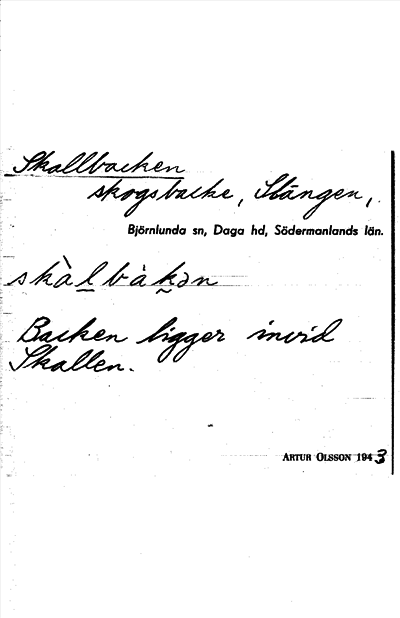 Skallbacken
skogsbacke, Stängen,
Björnlunda sn, Daga hd, Södermanlands län.
skàl̲bàk̰ən
Backen ligger invid
Skallen.
ARTUR OLSSON 1943